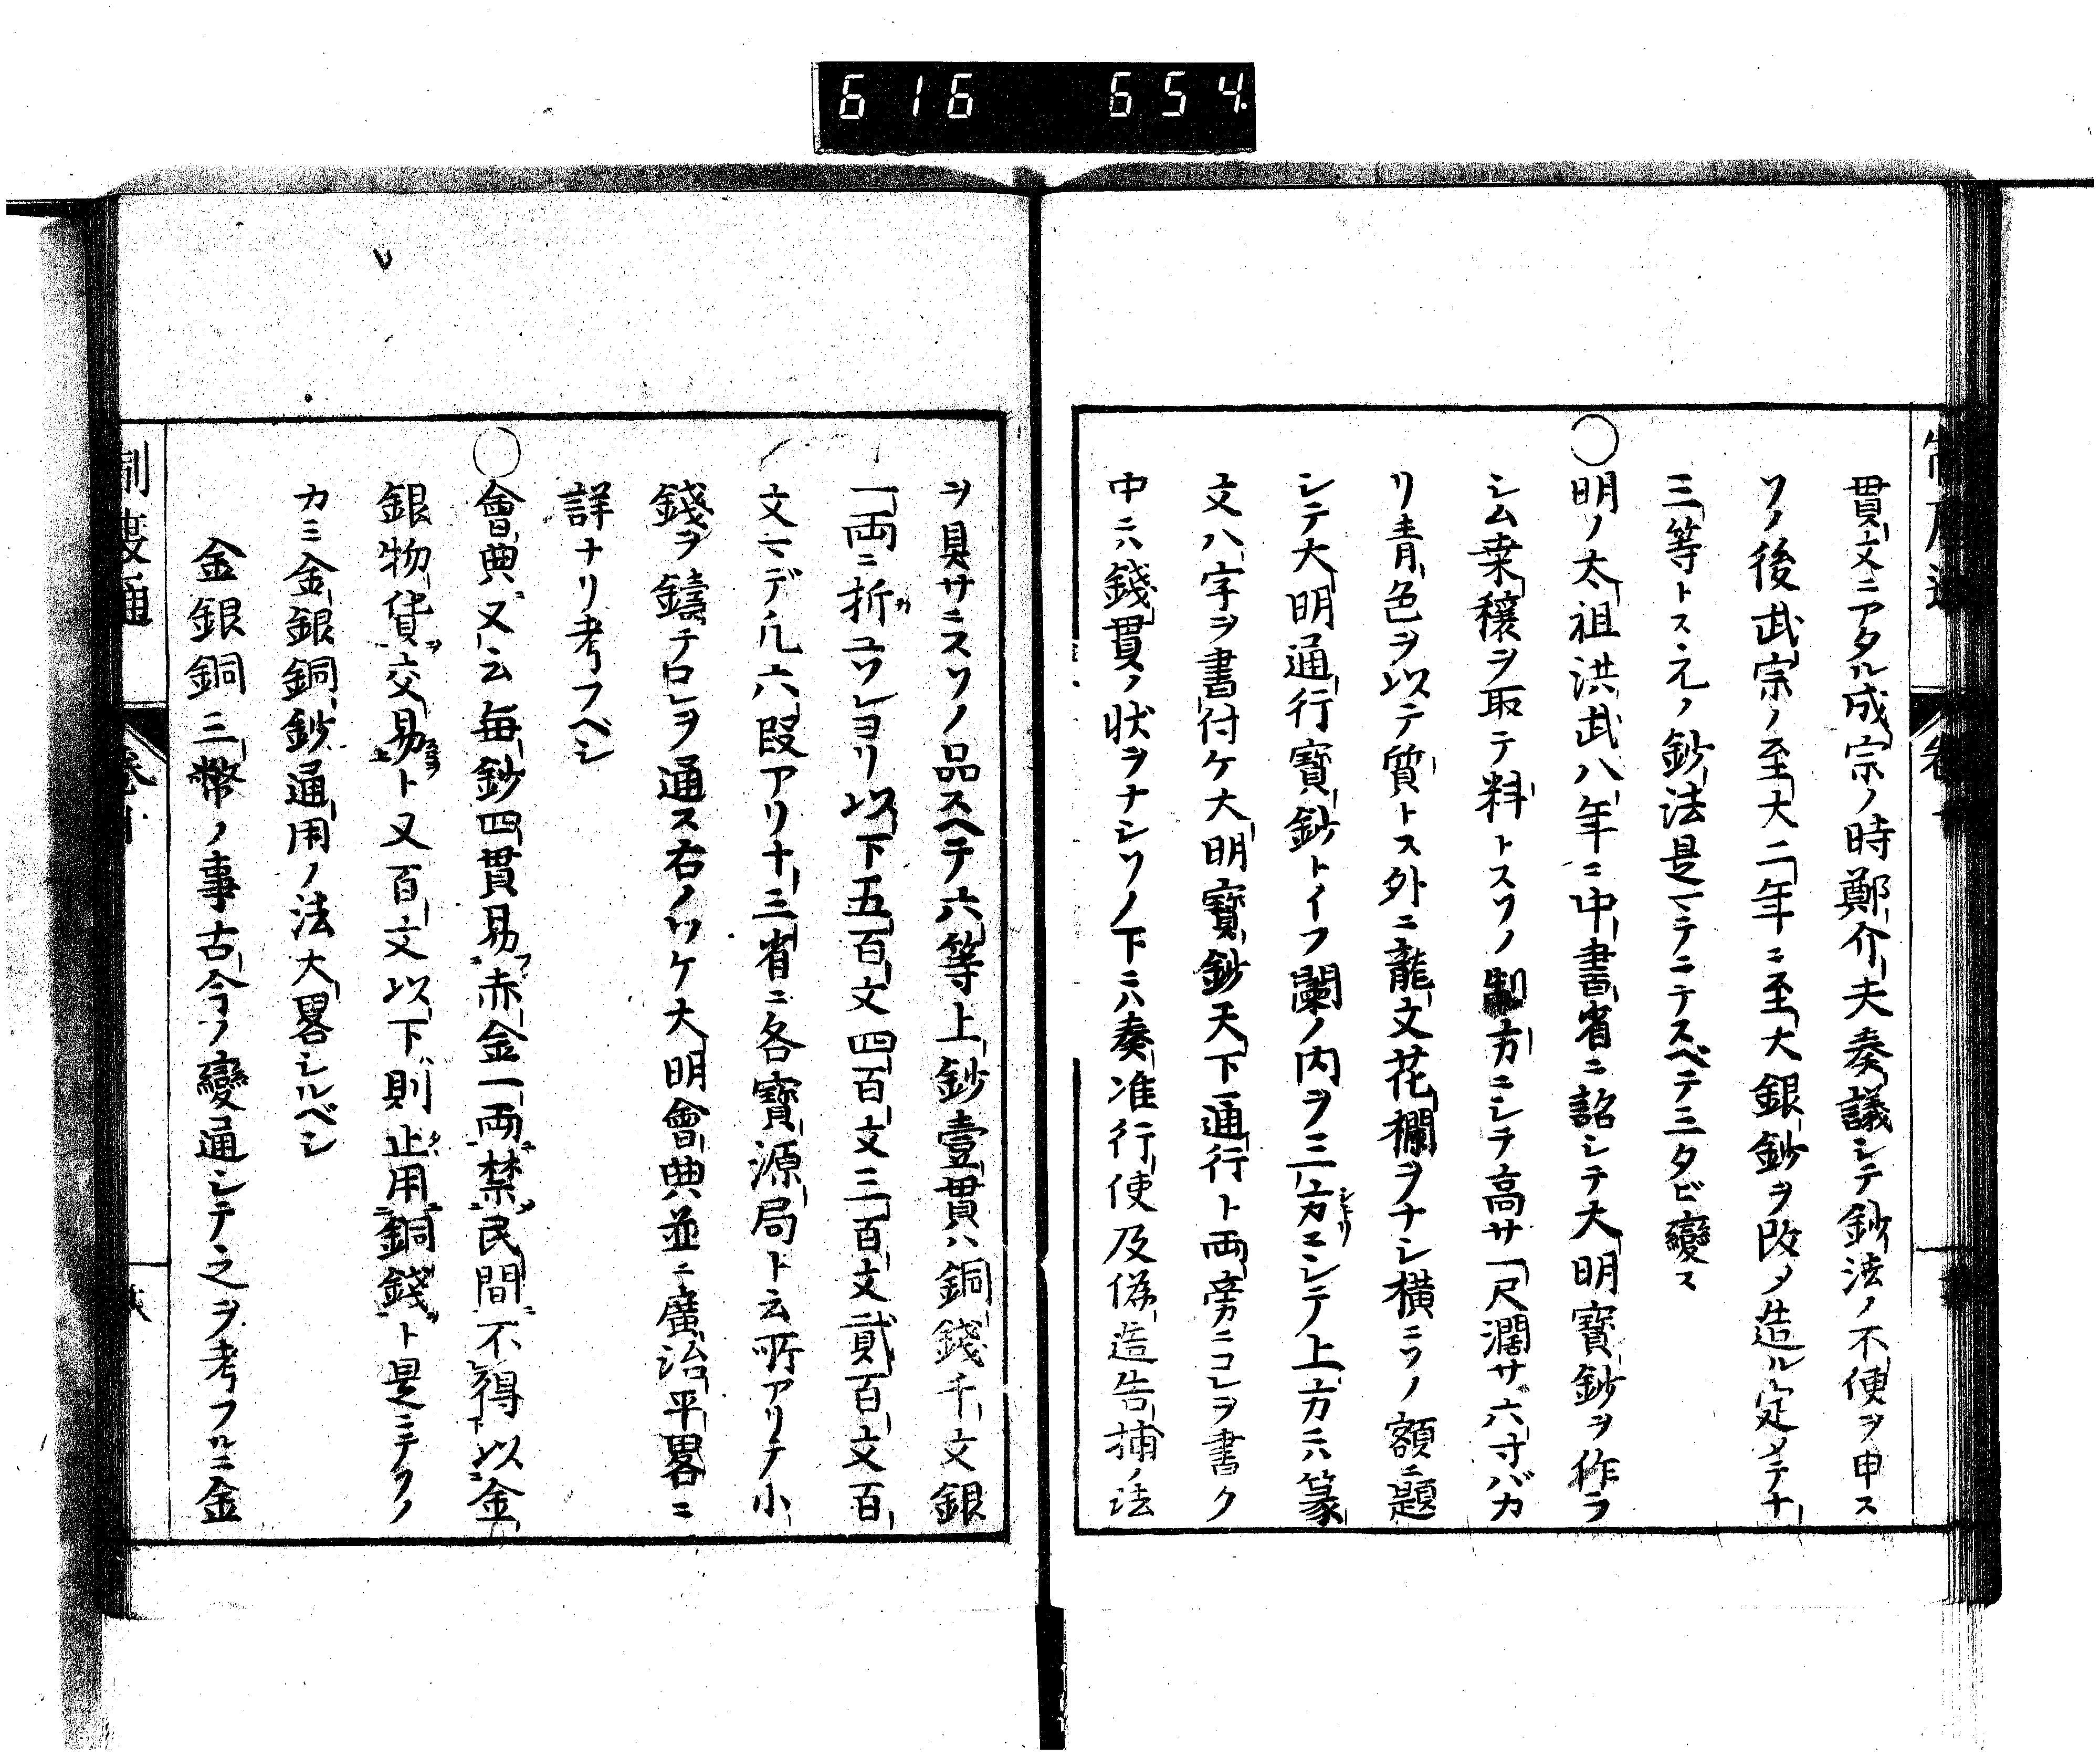 616 654
貫文ニアタル成宗ノ時鄭介夫奏議シテ鈔法ノ不便ヲ申ス
ソノ後武宗ノ至大二年ニ至大銀鈔ヲ改メ造ル定メテナ
三等トス元ノ鈔法是マテニテスベテ三タビ變ス
○明ノ太祖洪武八年ニ中書省ニ詔シテ大明寶鈔ヲ作ラ
シム桒穰ヲ取テ料トスソノ制方ニシテ高サ一尺濶サ六寸バカ
リ青色ヲ以テ質トス外ニ龍文花欄ヲナシ横ニソノ額ニ題
シテ大明通行寶鈔トイフ闌ノ内ヲ三方ニシテ上方ニハ篆
文八字ヲ書付ケ大明寶鈔天下通行ト両旁ニコレヲ書ク
中ニハ錢貫ノ状ヲナシソノ下ニハ奏准行使及偽造告捕ノ法
ヲ具サニスソノ品スヘテ六等上鈔壹貫ハ銅錢千文銀
一両ニ折ユソレヨリ以下五百文四百文三百文貳百文百
文マデ凡六段アリ十三省ニ各寶源局ト云所アリテ小
錢ヲ鑄テコレヲ通ス右ノワケ大明會典並ニ廣治平畧ニ
詳ナリ考フベシ
○會典又云毎鈔四貫易赤金一両禁民間不得以金
銀物貨交易ト又百文以下則止用銅錢ト是ニテソノ
カミ金銀銅鈔通用ノ法大畧シルベシ
金銀銅三幣ノ事古今ノ變通シテ之ヲ考フルニ金
制度通